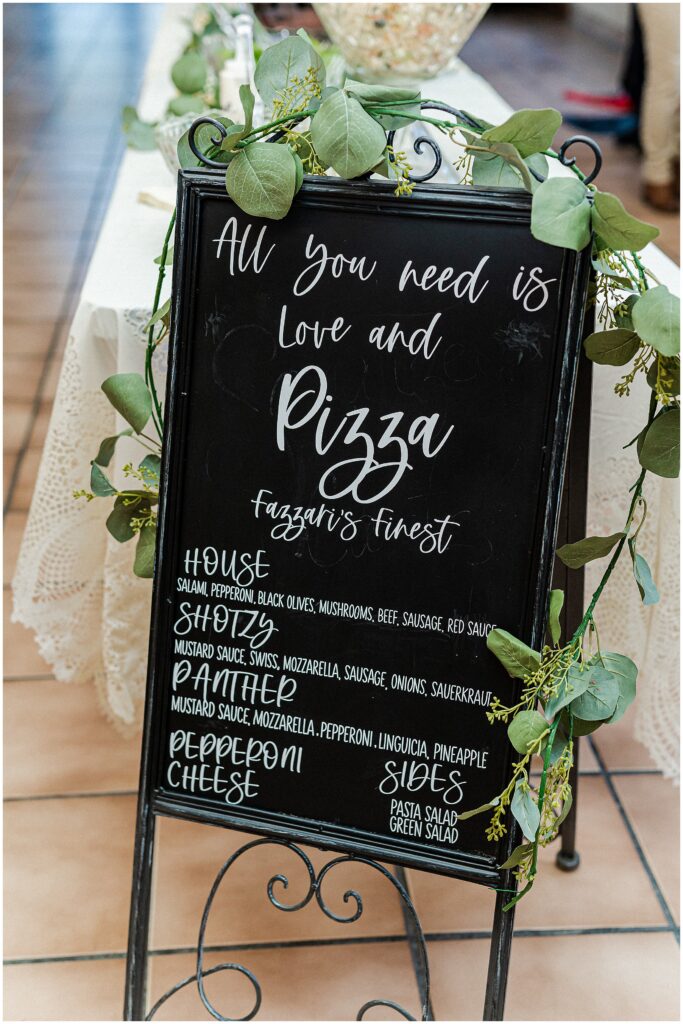 All you need is
Love and
Pizza
Fazzari's Finest
HOUSE
SALAMI, PEPPERONI, BLACK OLIVES, MUSHROOMS, BEEF, SAUSAGE, RED SAUCE
SHOTZY
MUSTARD SAUCE, SWISS, MOZZARELLA, SAUSAGE, ONIONS, SAUERKRAUT
PANTHER
MUSTARD SAUCE, MOZZARELLA, PEPPERONI, LINGUICIA, PINEAPPLE
PEPPERONI
CHEESE
SIDES
PASTA SALAD
GREEN SALAD